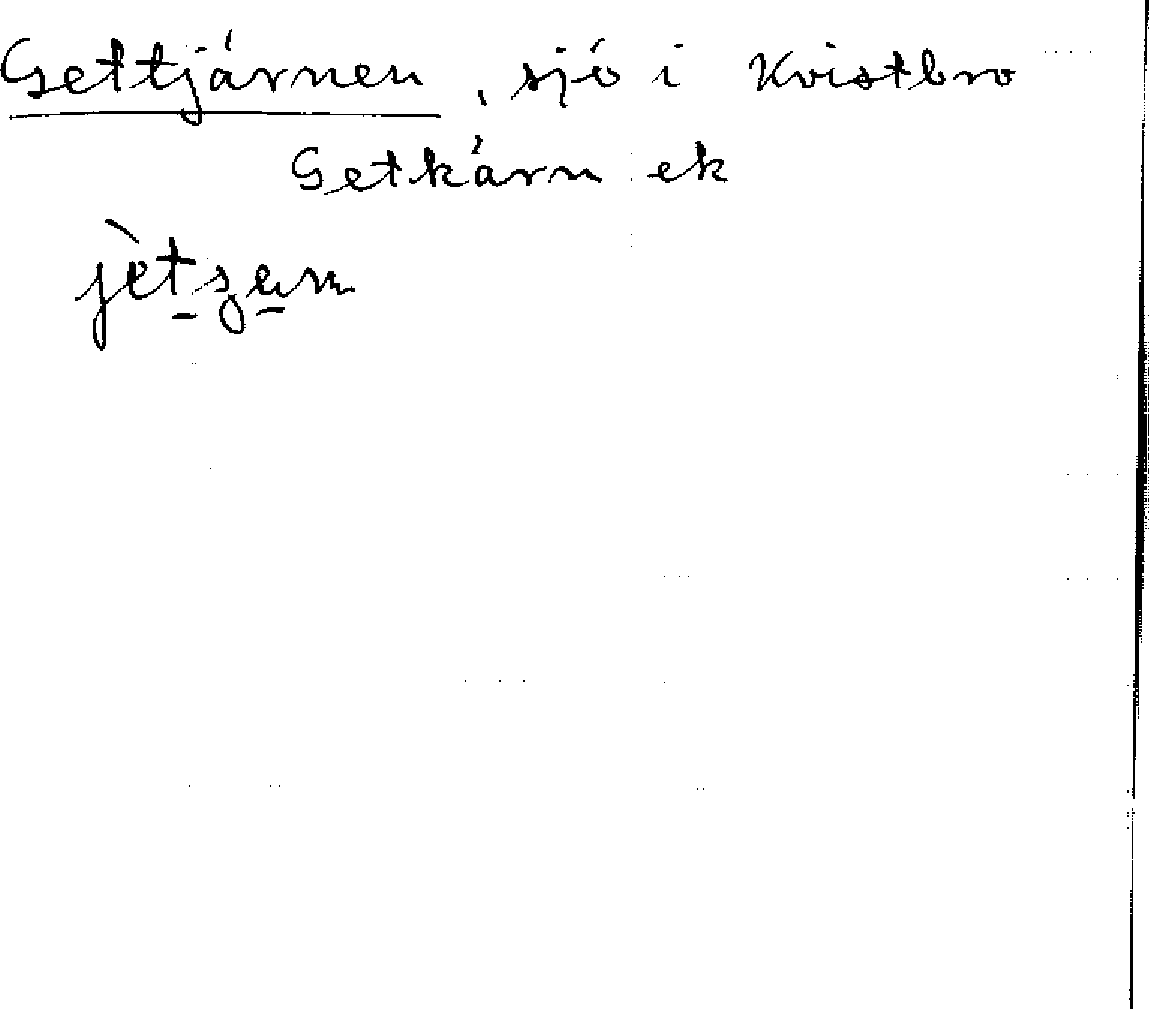 Gettjärnen, sjö i Kvistbro
Getkärn ek